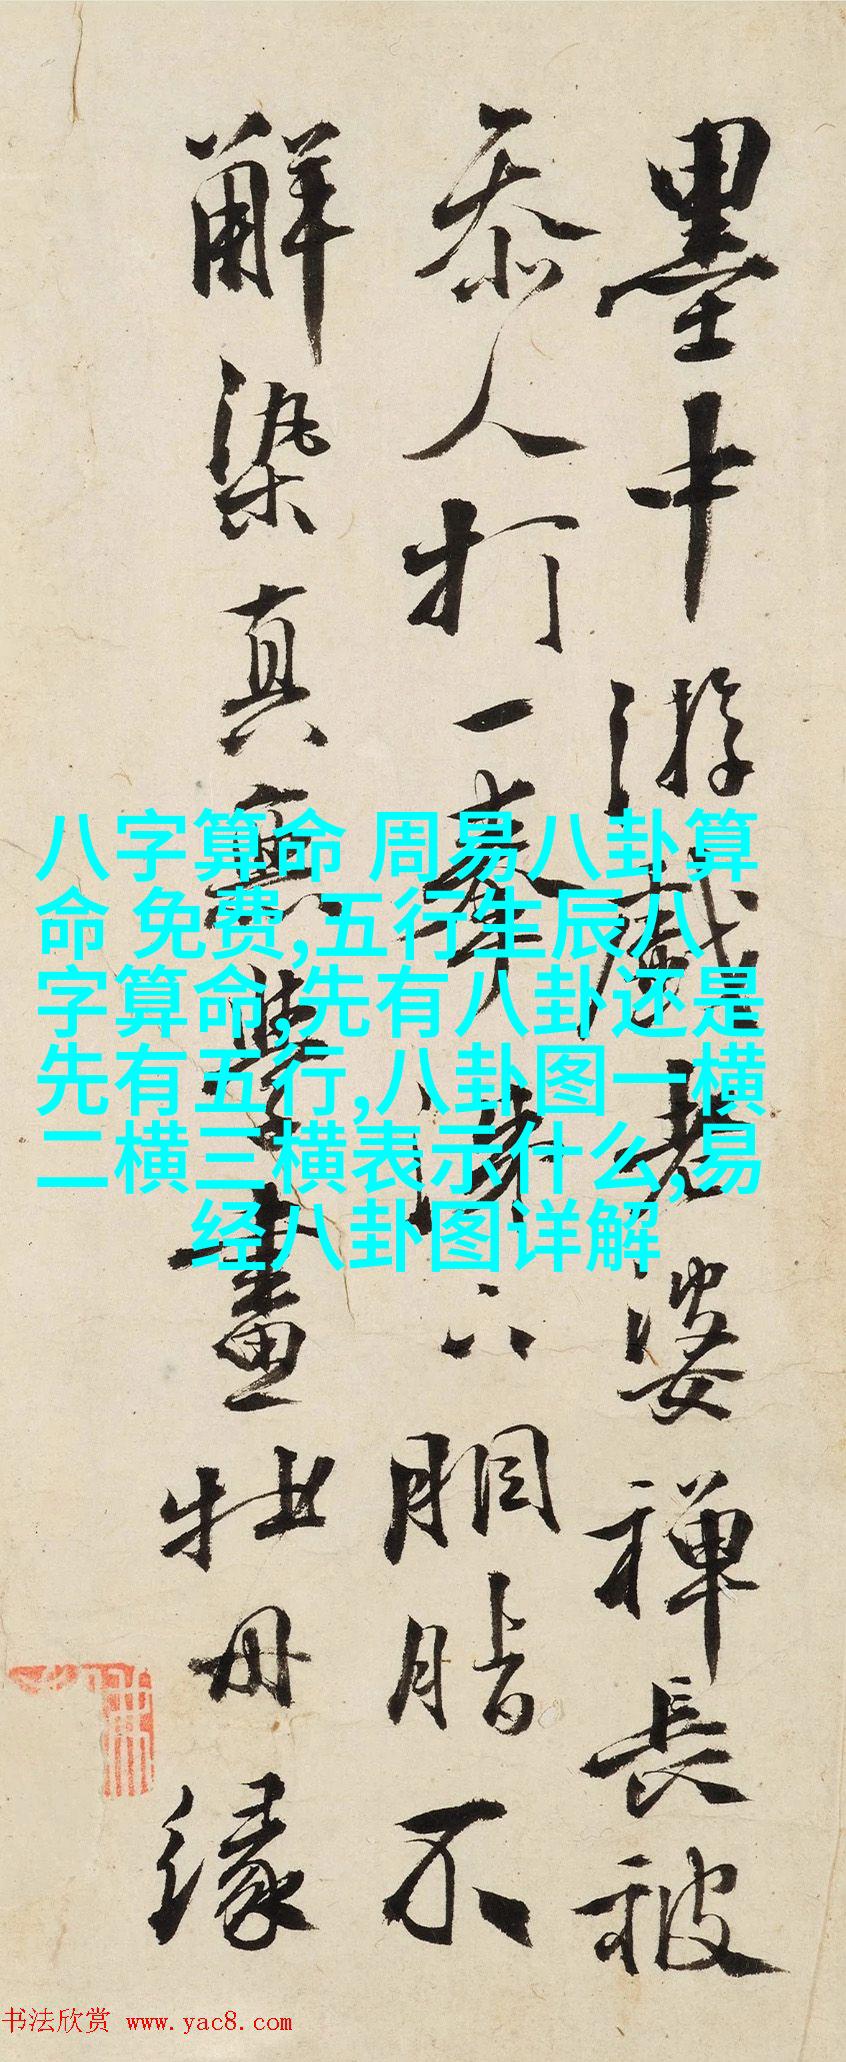 墨中游戲老婆禪長被
忝人打一拳涕下胭脂不
解染真無學畫牡丹緣
八字算命 周易八卦算
命 免费,五行生辰八
字算命,先有八卦还是
先有五行,八卦图一横
二横三横表示什么,易
经八卦图详解
书法欣赏 www.yac8.com